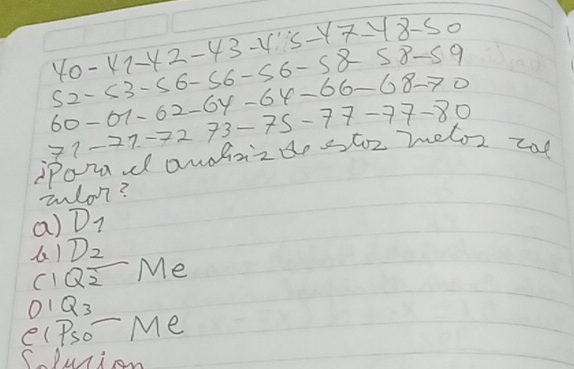 40-41-42-43-45-47-48-50
52-53-56-56-56-58-58-59
60-61-62-64-64-66-68-70
71-71-72 73-75-77-77-80
¿Para el analisiz de estoz metoz cal
cular?
a) D1
b) D2
c) Q2 - Me
D) Q3
e) P50 - Me
Solucion